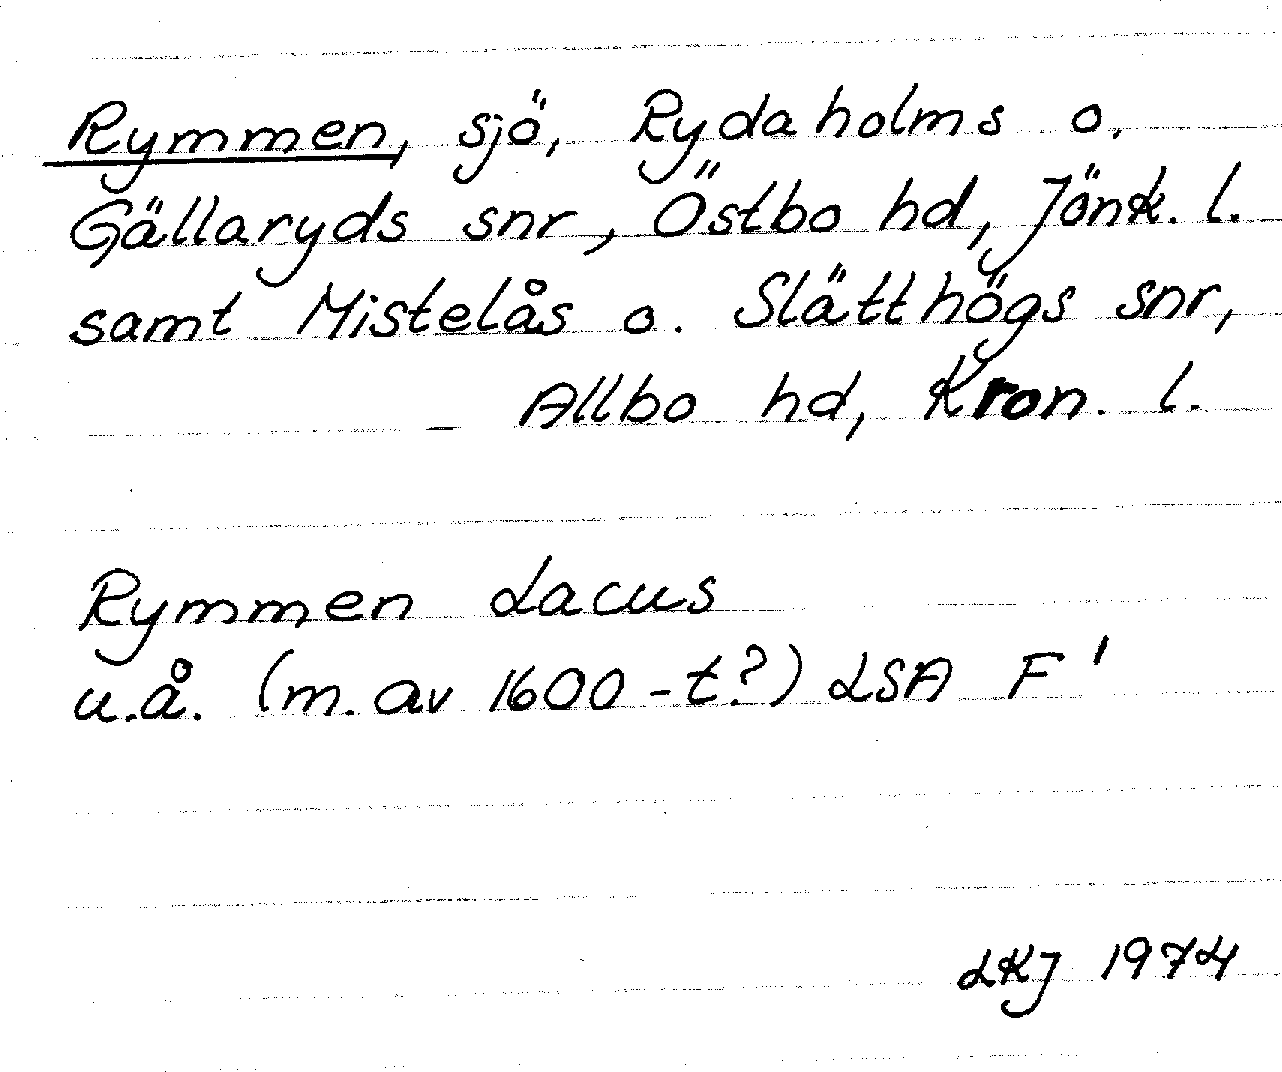 Rymmen, sjö, Rydaholms o.
Gällaryds snr, Östbo hd, Jönk. l.
samt Mistelås o. Slätthögs snr,
Allbo hd, Kron. l.
Rymmen Lacus
u.å. (m. av 1600-t?) LSA F'
LKJ 1974